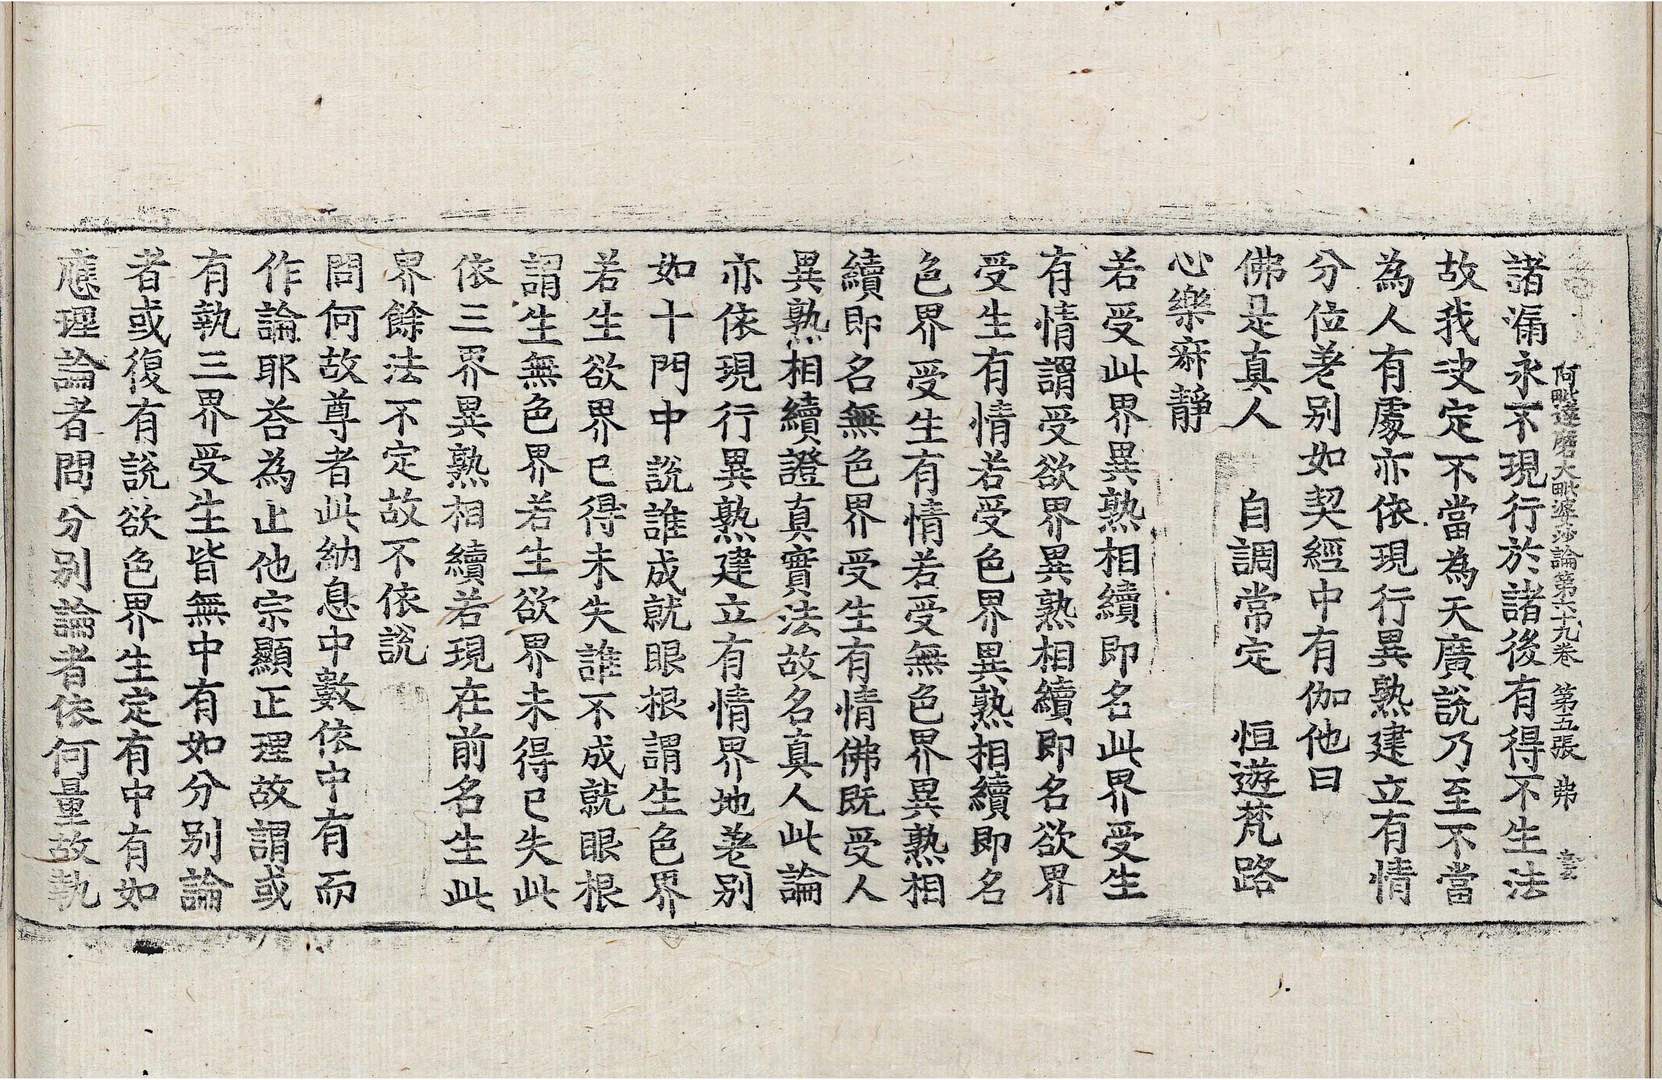 阿毗達磨大毗婆沙論第六十九卷 第五張 弗
諸漏永不現行於諸後有得不生法
故我决定不當為天廣說乃至不當
為人有處亦依現行異熟建立有情
分位差别如契經中有伽他曰
佛是真人 自調常定 恒遊梵路
心樂寂靜
若受此界異熟相續即名此界受生
有情謂受欲界異熟相續即名欲界
受生有情若受色界異熟相續即名
色界受生有情若受無色界異熟相
續即名無色界受生有情佛既受人
異熟相續證真實法故名真人此論
亦依現行異熟建立有情界地差别
如十門中說誰成就眼根謂生色界
若生欲界已得未失誰不成就眼根
謂生無色界若生欲界未得已失此
依三界異熟相續若現在前名生此
界餘法不定故不依說
問何故尊者此納息中數依中有而
作論耶荅為止他宗顯正理故謂或
有執三界受生皆無中有如分别論
者或復有說欲色界生定有中有如
應理論者問分别論者依何量故執